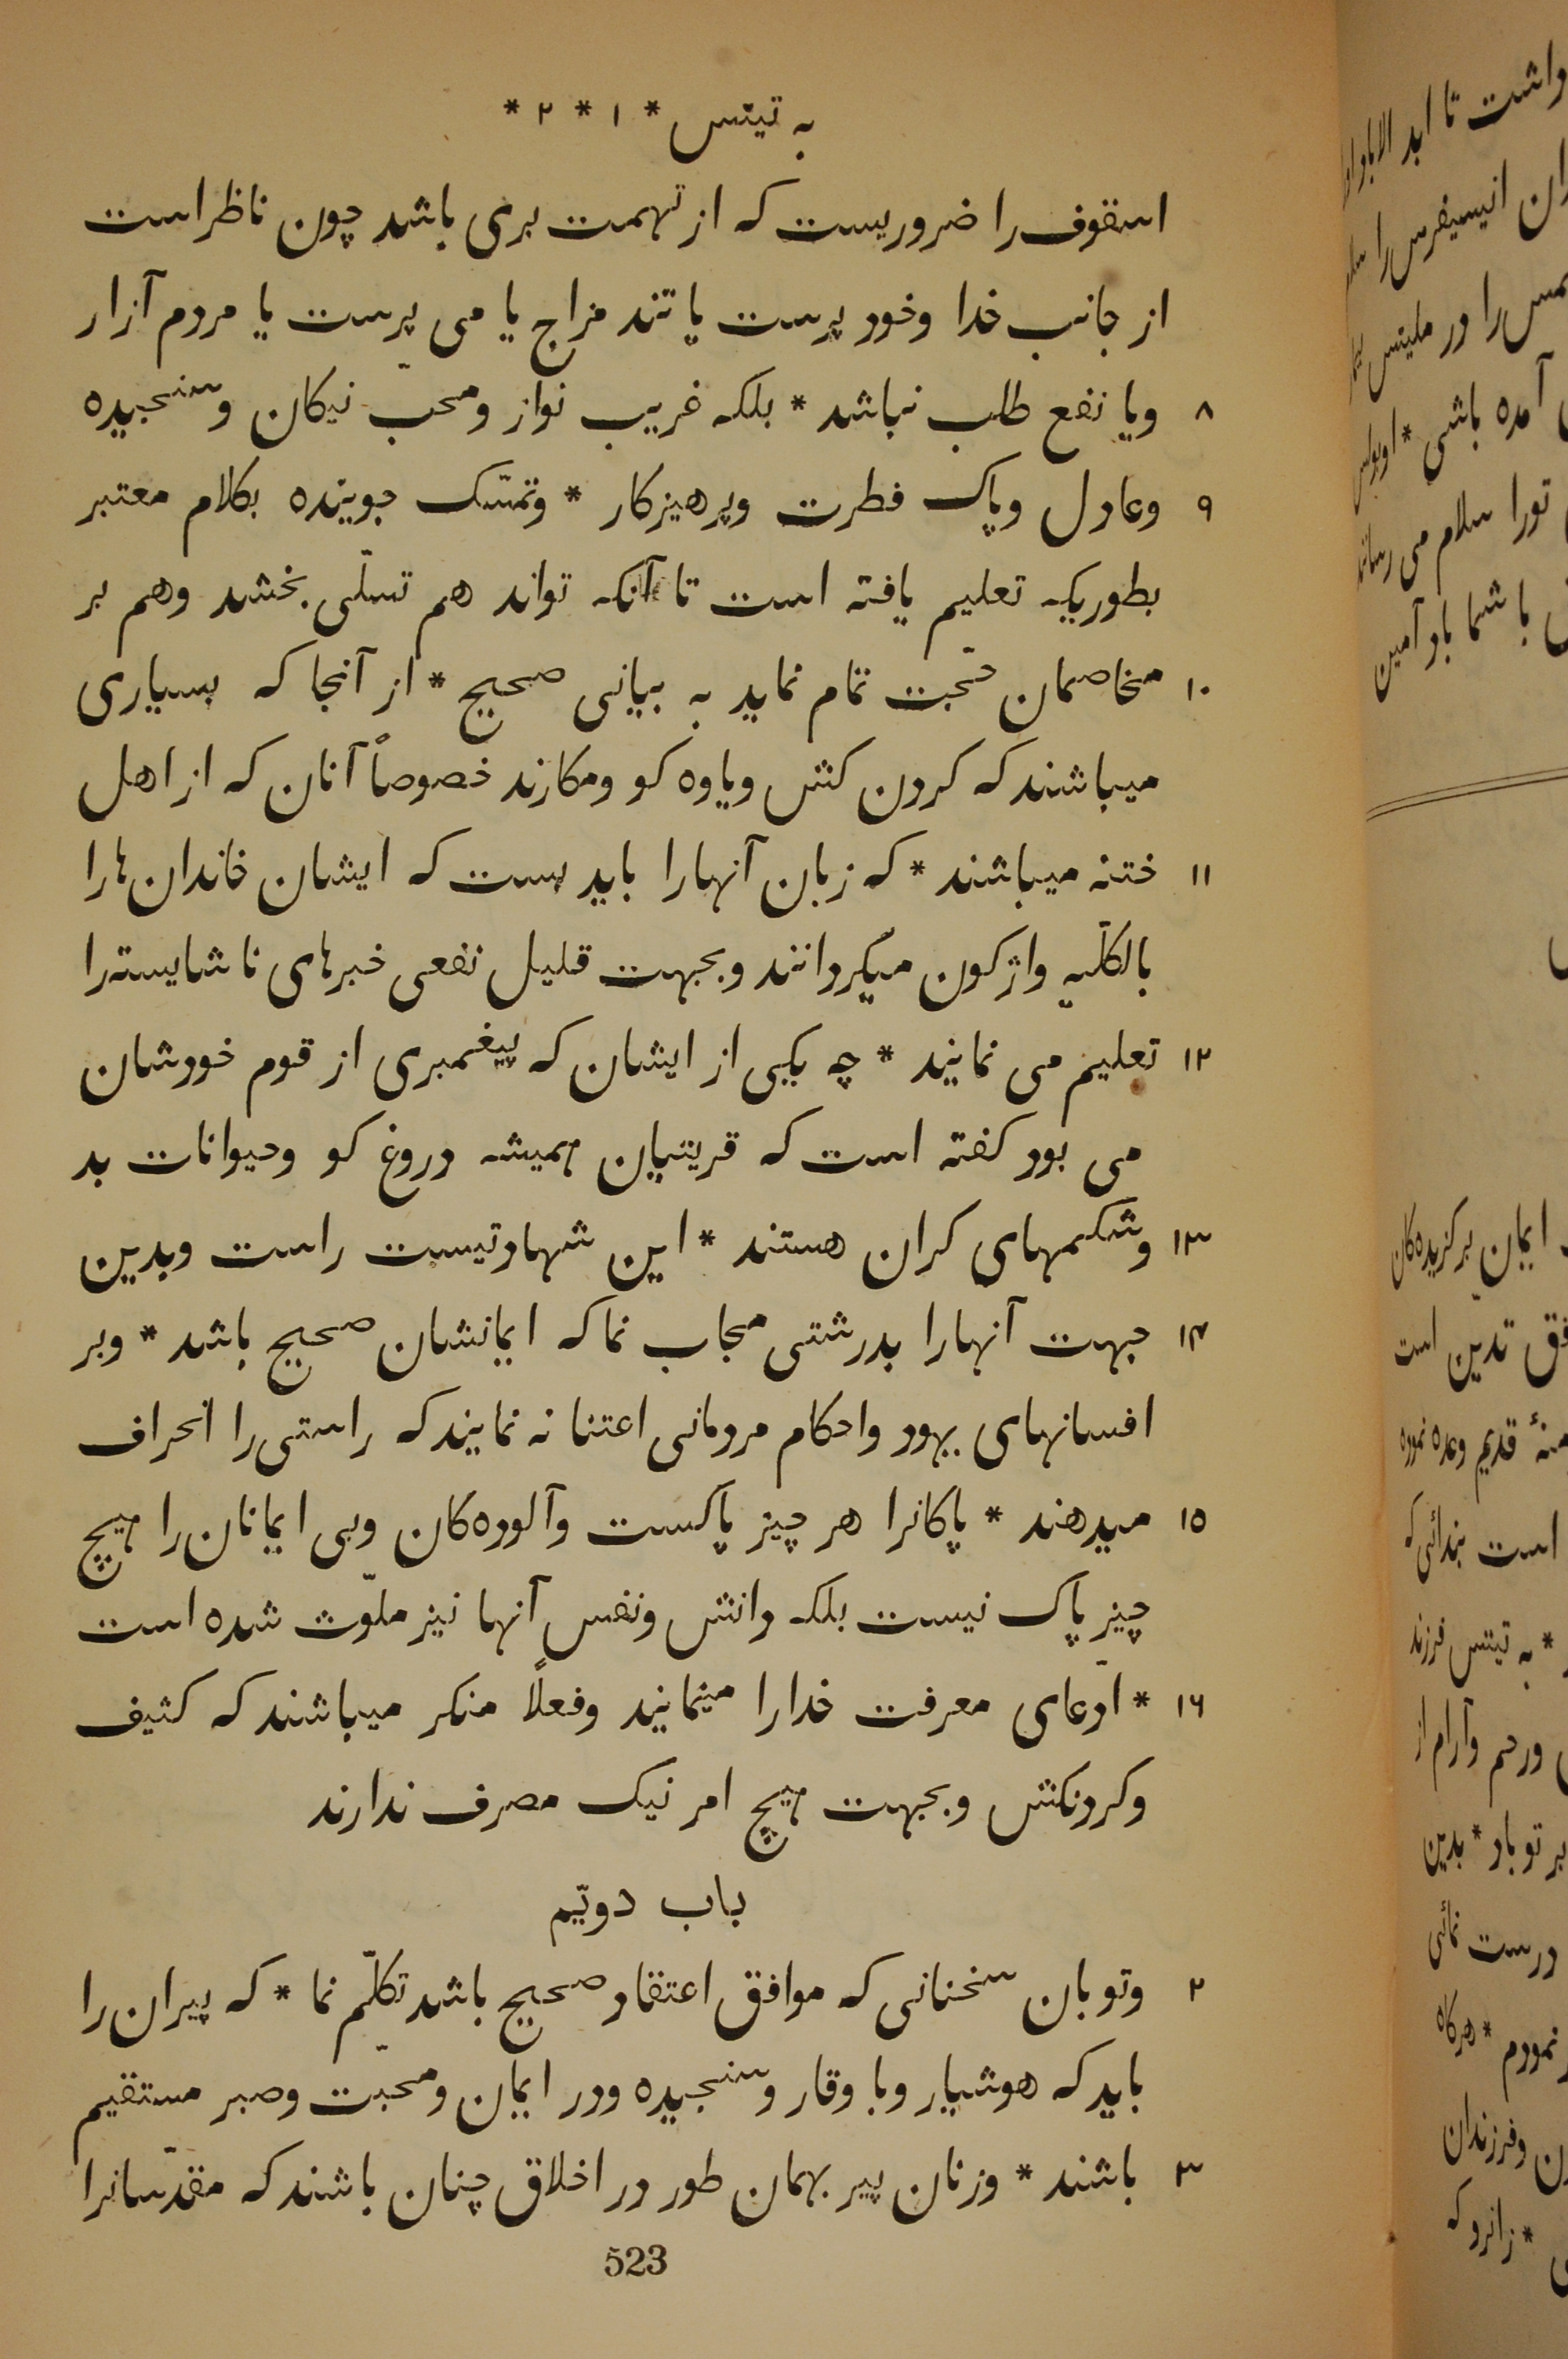 به تیتس * ۱ * ۲ *
اسقوف را ضروریست که از تهمت بری باشد چون ناظر است
از جانب خدا وخود پرست یا تند مزاج یا می پرست یا مردم آزار
۸ ویا نفع طلب نباشد * بلکه غریب نواز ومحب نیکان وسنجیده
۹ وعادل وپاک فطرت وپرهیزکار * وتمسّک جوینده بکلام معتبر
بطوریکه تعلیم یافته است تا آنکه تواند هم تسلّی بخشد وهم بر
۱۰ مخاصمان حجّت تمام نماید به بیانی صحیح * از آنجا که بسیاری
میباشند که کردن کش ویاوه کو ومکارند خصوصاً آنان که از اهل
۱۱ ختنه میباشند * که زبان آنهارا باید بست که ایشان خاندان‌هارا
بالکلّیه واژکون میکردانند وبجهت قلیل نفعی خبرهای ناشایسته‌را
۱۲ تعلیم می نمایند * چه یکی از ایشان که پیغمبری از قوم خودشان
می بود کفته است که قریتیان همیشه دروغ کو وحیوانات بد
۱۳ وشکمهای کران هستند * این شهادتیست راست وبدین
۱۴ جهت آنهارا بدرشتی مجاب نما که ایمانشان صحیح باشد * وبر
افسانهای یهود واحکام مردمانی اعتنا نه نمایند که راستی را انحراف
۱۵ میدهند * پاکانرا هر چیز پاکست وآلوده‌کان وبی ایمانان را هیچ
چیز پاک نیست بلکه دانش ونفس آنها نیز ملوّث شده است
۱۶ * ادّعای معرفت خدارا مینمایند وفعلاً منکر میباشند که کثیف
وکردنکش وبجهت هیچ امر نیک مصرف ندارند
باب دویّم
۲ وتو بان سخنانی که موافق اعتقاد صحیح باشد تکلّم نما * که پیران را
باید که هوشیار وبا وقار وسنجیده ودر ایمان ومحبّت وصبر مستقیم
۳ باشند * وزنان پیر بهمان طور در اخلاق چنان باشند که مقدّسانرا
523